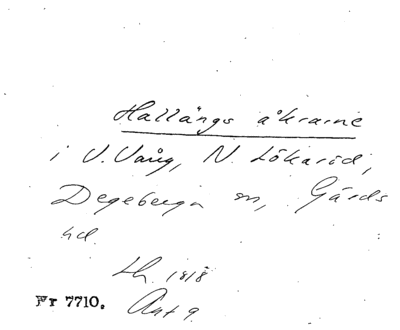 Hallängs åkrarne
i V. Vång, N. Lökaröd,
Degeberga sn, Gärds
hd.
Lh. 1818
Fr 7710. Akt 9.